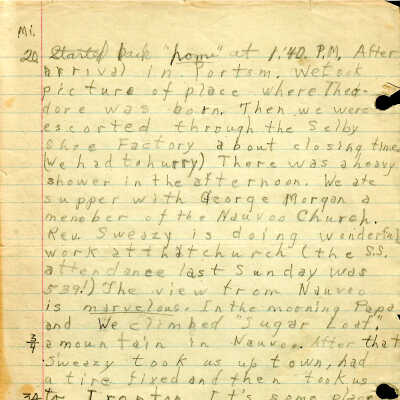 Mi.
20 Started back "home" at 1:40 P.M. After
arrival in Portsm. We took
picture of place where Theo-
dore was born. Then we were
escorted through the Selby
Shoe Factory about closing time
(We had to hurry) There was a heavy
shower in the afternoon. We ate
supper with George Morgan a
menober of the Nauvoo Church.
Rev. Sweazy is doing wonderful
work at that church (the S.S.
attendance last Sunday was
539!) The view from Nauvoo
is marvelous. In the morning Papa
and We climbed "Sugar Loaf",
3/4 a mountain in Nauvoo. After that
Sweazy took us up town, had
a tire fixed and then took us
34 to Ironton. It's some place